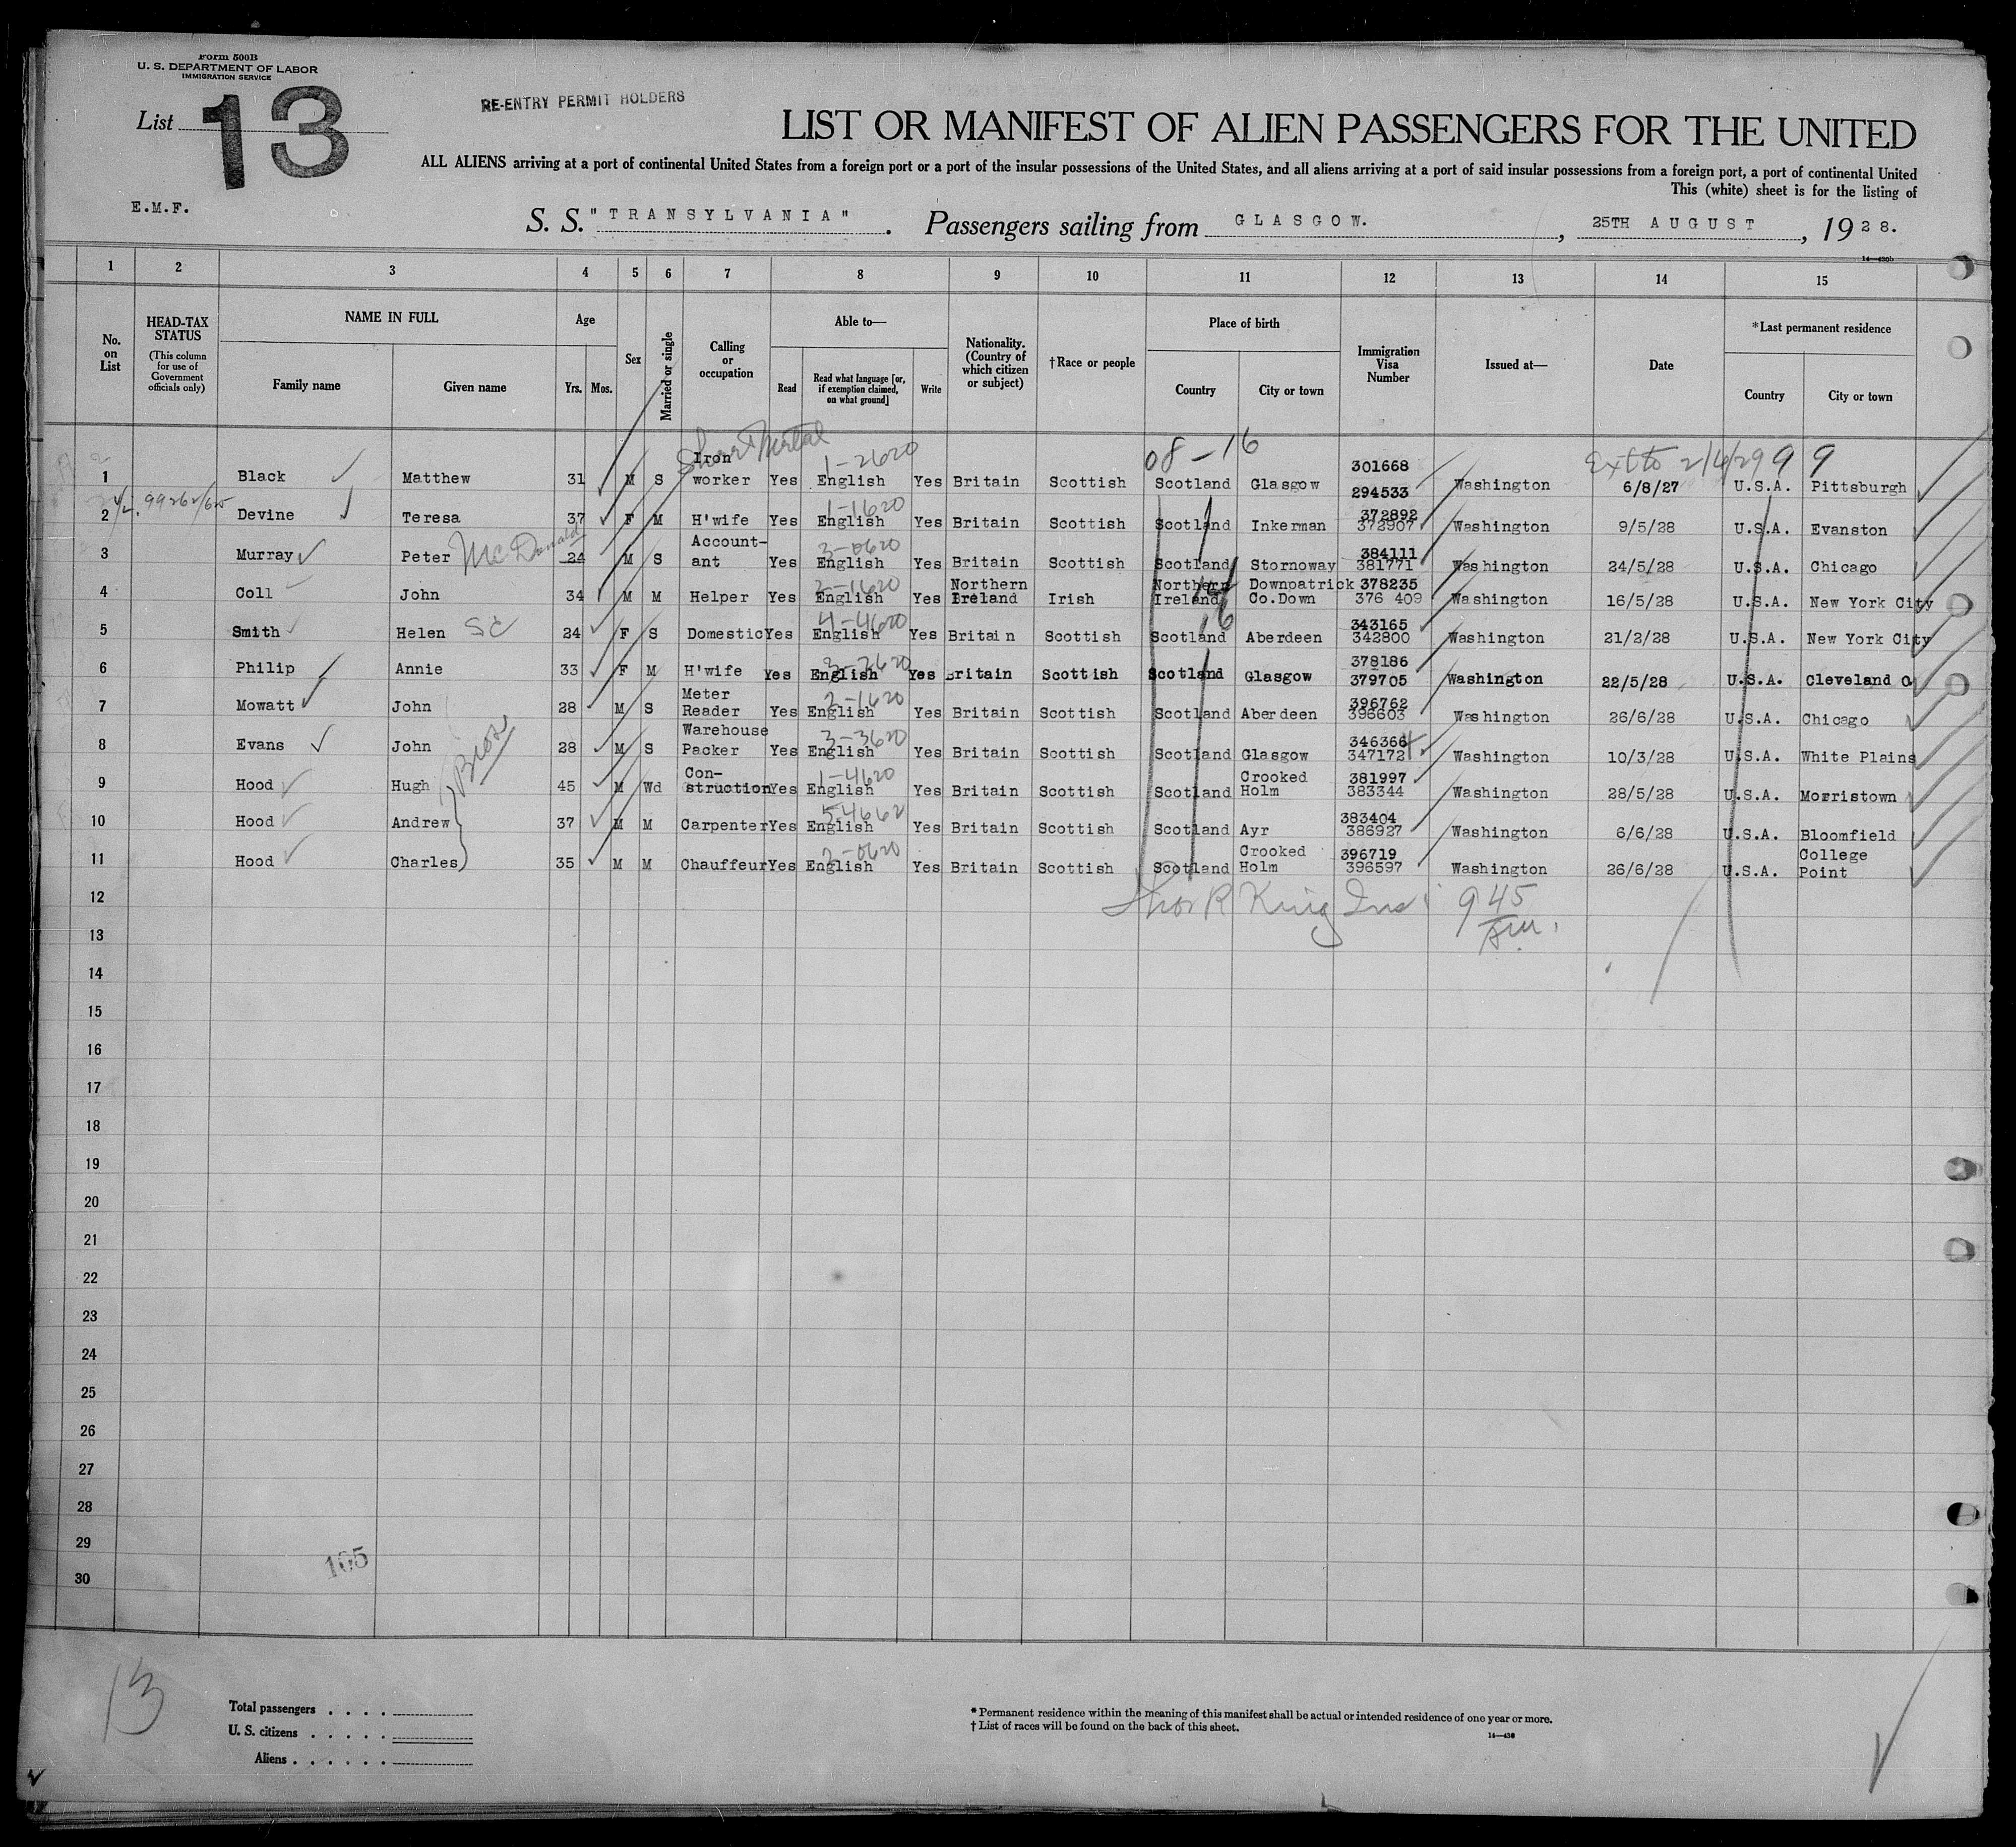 Form 500B
U. S. DEPARTMENT OF LABOR
IMMIGRATION SERVICE
List 13
RE-ENTRY PERMIT HOLDERS
LIST OR MANIFEST OF ALIEN PASSENGERS FOR THE UNITED
ALL ALIENS arriving at a port of continental United States from a foreign port or a port of the insular possessions of the United States, and all aliens arriving at a port of said insular possessions from a foreign port, a port of continental United
This (white) sheet is for the listing of
E.M.F.
S. S. "TRANSYLVANIA". Passengers sailing from GLASGOW., 25TH AUGUST, 1928.
14—430b
1 2 3 4 5 6 7 8 9 10 11 12 13 14 15
No. on List
HEAD-TAX STATUS
(This column for use of Government officials only)
NAME IN FULL
Family name
Given name
Age
Yrs.
Mos.
Sex
Married or single
Calling or occupation
Able to—
Read
Read what language [or, if exemption claimed, on what ground]
Write
Nationality. (Country of which citizen or subject)
†Race or people
Place of birth
Country
City or town
Immigration Visa Number
Issued at—
Date
*Last permanent residence
Country
City or town
Sheet Metal 1-2620 08-16 Ext to 2/4/29 9 9
1 Black Matthew 31 M S Iron worker Yes English Yes Britain Scottish Scotland Glasgow 301668 294533 Washington 6/8/27 U.S.A. Pittsburgh
1-1620
2 Devine Teresa 37 F M H'wife Yes English Yes Britain Scottish Scotland Inkerman 372892 372907 Washington 9/5/28 U.S.A. Evanston
3-0620
3 Murray Peter McDonald 24 M S Account-ant Yes English Yes Britain Scottish Scotland Stornoway 384111 381771 Washington 24/5/28 U.S.A. Chicago
2-1620
4 Coll John 34 M M Helper Yes English Yes Northern Ireland Irish Northern Ireland Downpatrick Co.Down 378235 376 409 Washington 16/5/28 U.S.A. New York City
4-4620
5 Smith Helen SC 24 F S Domestic Yes English Yes Britain Scottish Scotland Aberdeen 343165 342800 Washington 21/2/28 U.S.A. New York City
6 Philip Annie 33 F M H'wife Yes English Yes Britain Scottish Scotland Glasgow 378186 379705 Washington 22/5/28 U.S.A. Cleveland O
2-1620
7 Mowatt John 28 M S Meter Reader Yes English Yes Britain Scottish Scotland Aberdeen 396762 396603 Washington 26/6/28 U.S.A. Chicago
3-3620
8 Evans John 28 M S Warehouse Packer Yes English Yes Britain Scottish Scotland Glasgow 346366 347172 Washington 10/3/28 U.S.A. White Plains
Bros
1-4620
9 Hood Hugh 45 M Wd Con-struction Yes English Yes Britain Scottish Scotland Crooked Holm 381997 383344 Washington 28/5/28 U.S.A. Morristown
54662
10 Hood Andrew 37 M M Carpenter Yes English Yes Britain Scottish Scotland Ayr 383404 386927 Washington 6/6/28 U.S.A. Bloomfield
2-0620
11 Hood Charles 35 M M Chauffeur Yes English Yes Britain Scottish Scotland Crooked Holm 396719 396597 Washington 26/6/28 U.S.A. College Point
12 Thos R King Ins 9 45
13 Am.
14
15
16
17
18
19
20
21
22
23
24
25
26
27
28
29
30
165
13
Total passengers . . . .
U. S. citizens . . . . .
Aliens . . . . . .
*Permanent residence within the meaning of this manifest shall be actual or intended residence of one year or more.
†List of races will be found on the back of this sheet.
14—430